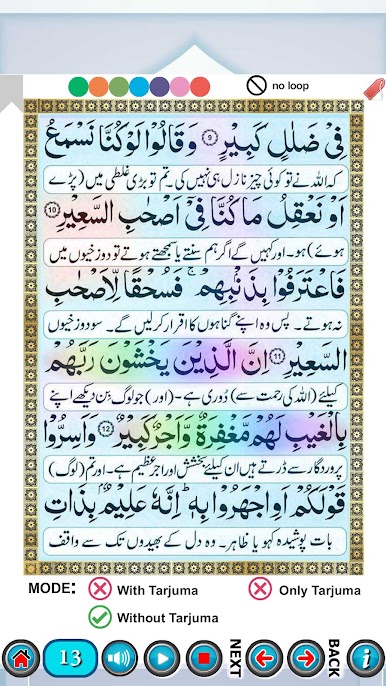 no loop
فِیْ ضَلٰلٍ كَبِیْرٍ ۹ وَ قَالُوْا لَوْ كُنَّا نَسْمَعُ
کہ اللہ نے تو کوئی چیز نازل ہی نہیں کی۔ تم تو بڑی غلطی میں (پڑے
اَوْ نَعْقِلُ مَا كُنَّا فِیْۤ اَصْحٰبِ السَّعِیْرِ ۱۰
ہوئے) ہو۔ اور کہیں گے اگر ہم سنتے یا سمجھتے ہوتے تو دوزخیوں میں
فَاعْتَرَفُوْا بِذَنْۢبِهِمْ ۚ فَسُحْقًا لِّاَصْحٰبِ
نہ ہوتے۔ پس وہ اپنے گناہوں کا اقرار کرلیں گے۔ سو دوزخیوں
السَّعِیْرِ ۱۱ اِنَّ الَّذِیْنَ یَخْشَوْنَ رَبَّهُمْ
کیلئے (اللہ کی رحمت سے) دُوری ہے۔ (اور) جو لوگ بن دیکھے اپنے
بِالْغَیْبِ لَهُمْ مَّغْفِرَةٌ وَّ اَجْرٌ كَبِیْرٌ ۱۲ وَ اَسِرُّوْا
پروردگار سے ڈرتے ہیں ان کیلئے بخشش اور اجر عظیم ہے۔ اور تم (لوگ)
قَوْلَكُمْ اَوِ اجْهَرُوْا بِهٖ ؕ اِنَّهٗ عَلِیْمٌۢ بِذَاتِ
بات پوشیدہ کہو یا ظاہر۔ وہ دل کے بھیدوں تک سے واقف
MODE: With Tarjuma Only Tarjuma
Without Tarjuma
13 NEXT BACK